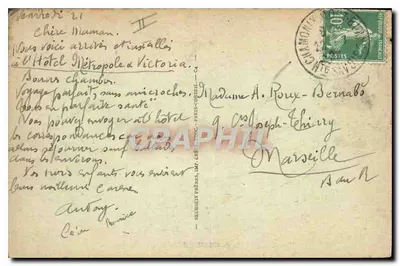 Vendredi 21
II
Chère Maman.
Nous voici arrivés et installés
à l'Hôtel Métropole & Victoria.
Bonnes chambres.
Voyage parfait, sans microches.
tous en parfaite santé
Vous pouvez envoyer à l'hôtel
les correspondances car nous
allons séjourner sauf
dans les environs.
Vos trois enfants vous envoient
leurs meilleures caresses
Antony
Madame A. Roux-Bernabo
9 Crs Joseph-Thierry
Marseille
B du R
CHAMONIX
HTE SAVOIE
POSTES
10
CPARAMA